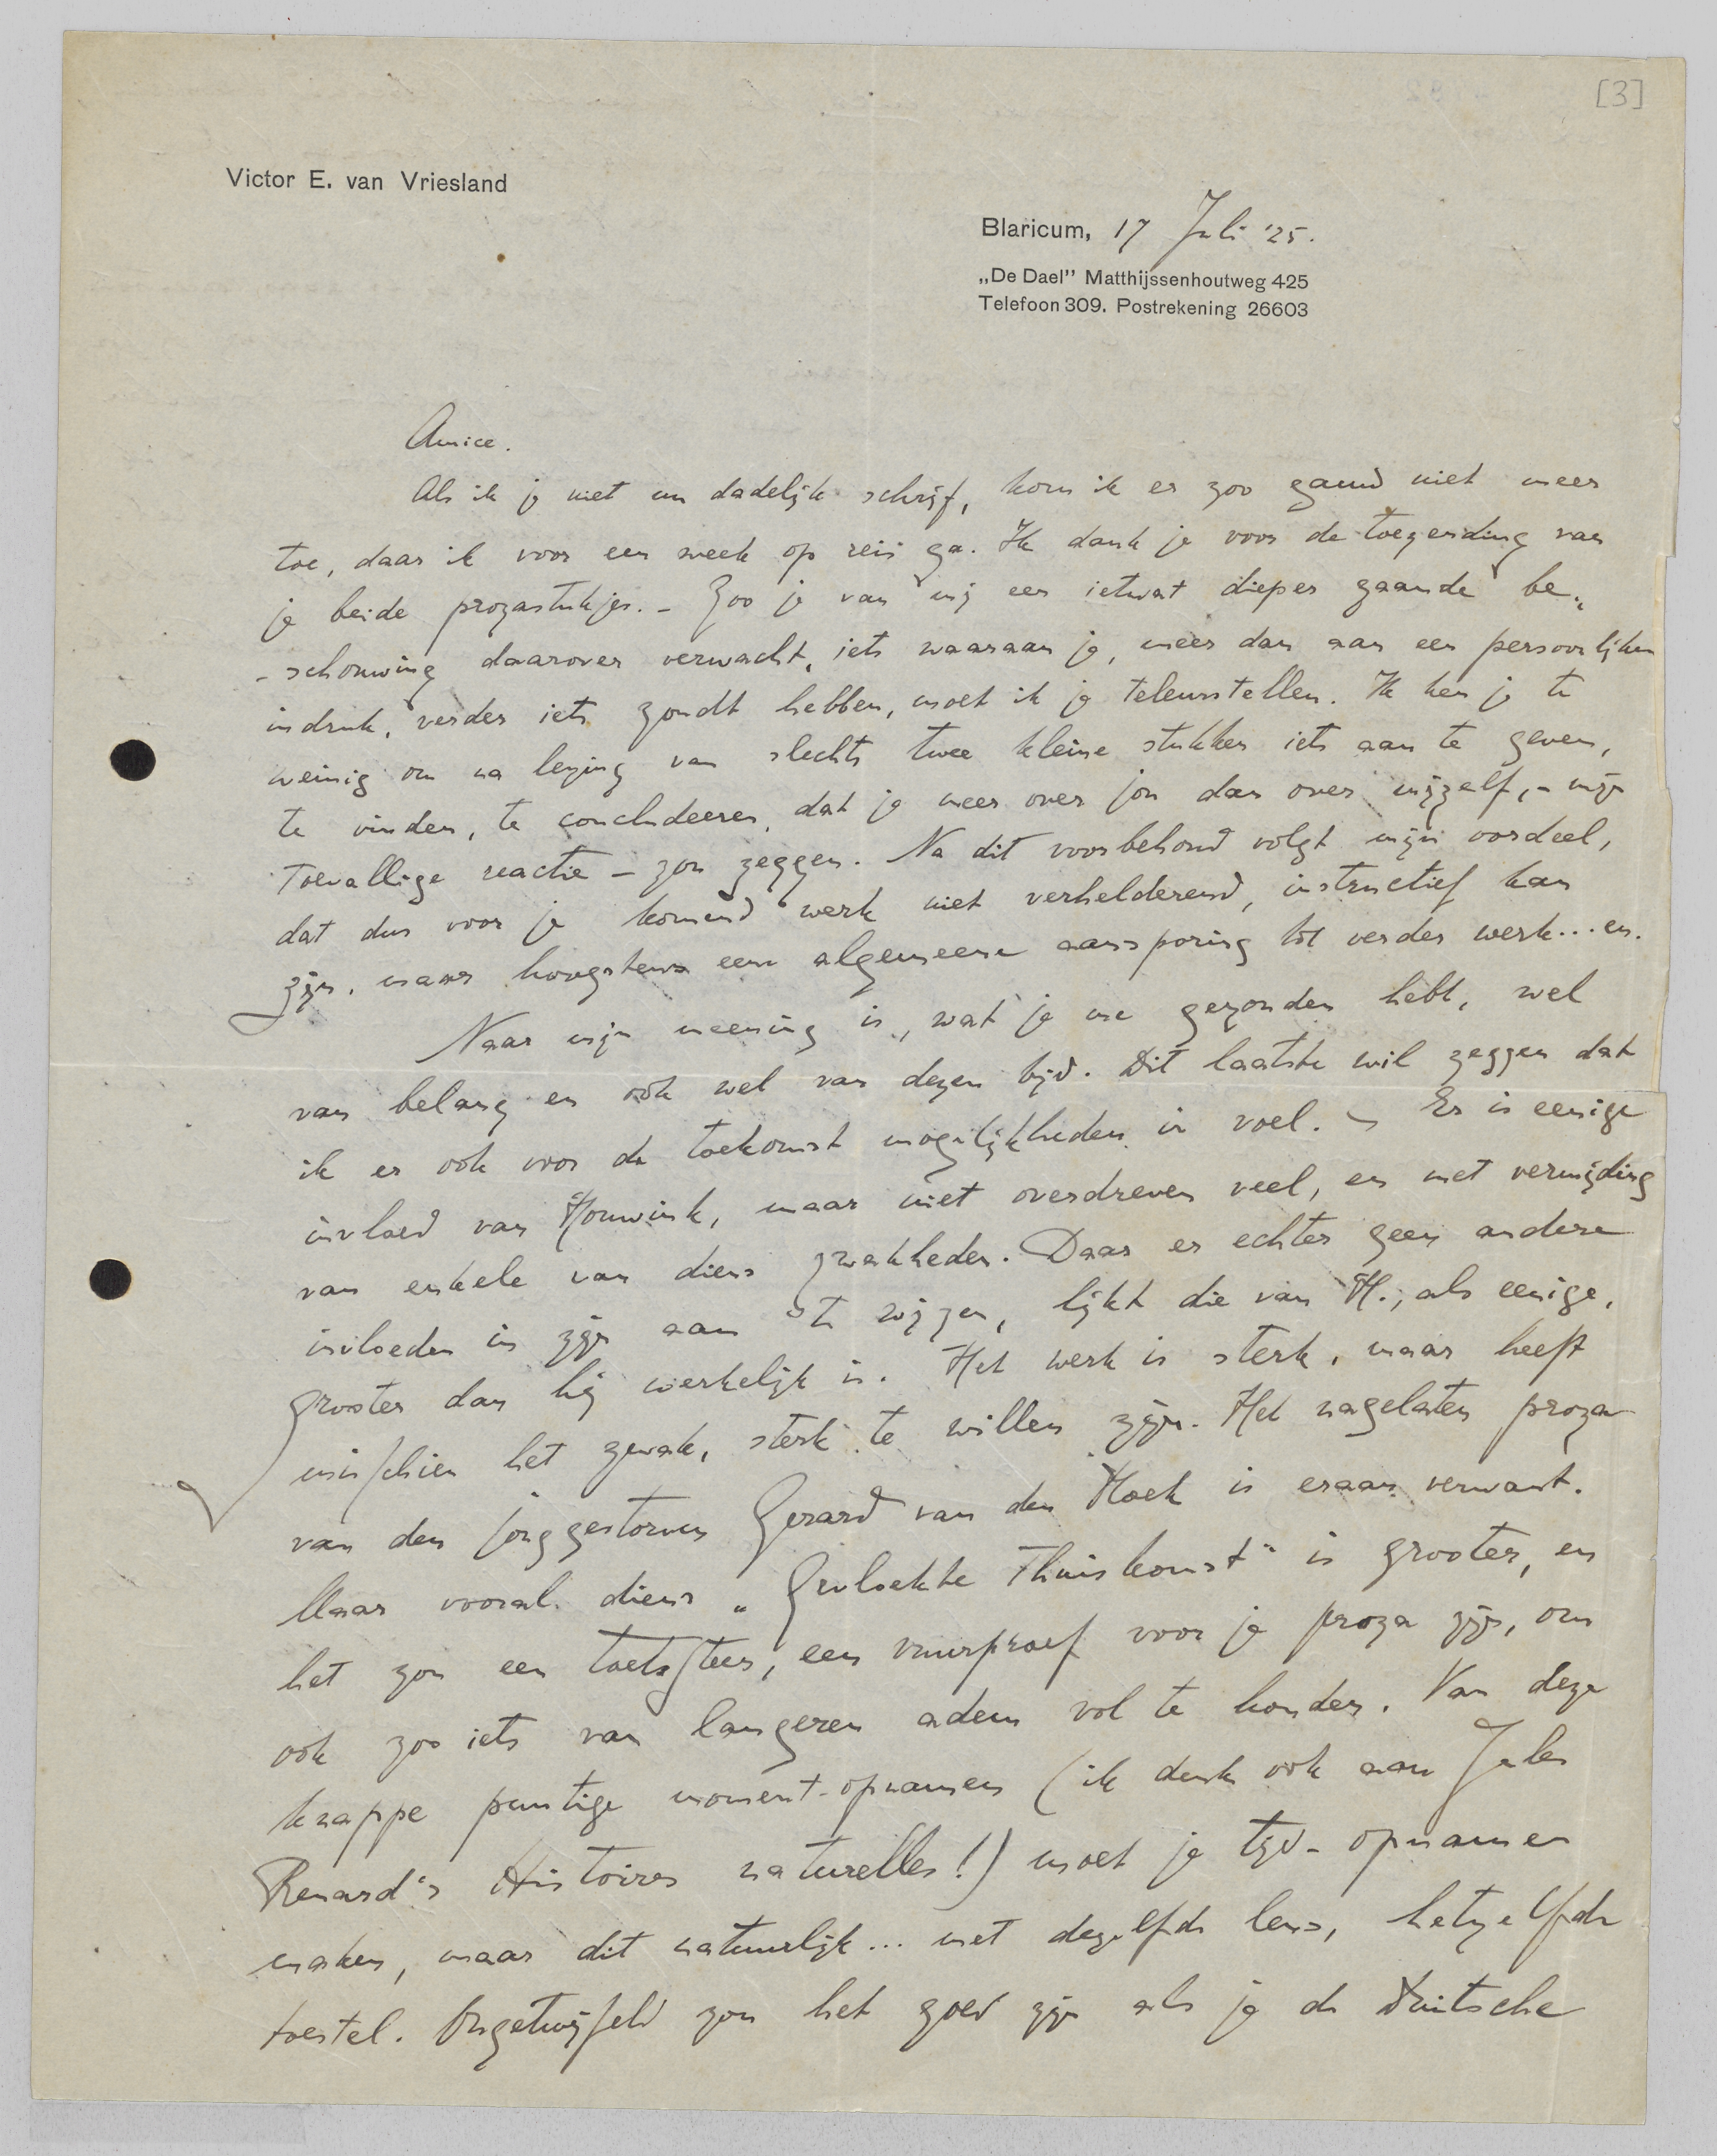 [3]
Victor E. van Vriesland
Blaricum, 17 Juli '25.
„De Dael" Matthijssenhoutweg 425
Telefoon 309. Postrekening 26603
Amice.
Als ik je niet nu dadelijk schrijf, kom ik er zoo gauw niet meer
toe, daar ik voor een week op reis ga. Ik dank je voor de toezending van
je beide prozastukjes. – Zoo je van mij een ietwat dieper gaande be-
-schouwing daarover verwacht, iets waaraan je, meer dan aan een persoonlijken
indruk, verder iets zoudt hebben, moet ik je teleurstellen. Ik ken je te
weinig om na lezing van slechts twee kleine stukken iets aan te geven,
te vinden, te concludeeren, dat je meer over jou dan over mijzelf, – mijn
toevallige reactie – zou zeggen. Na dit voorbehoud volgt mijn oordeel,
dat dus voor je komend werk niet verhelderend, instructief kan
zijn, maar hoogstens een algemeene aansporing tot verder werk... en.
Naar mijn meening is, wat je me gezonden hebt, wel
van belang en ook wel van dezen tijd. Dit laatste wil zeggen dat
ik er ook voor de toekomst mogelijkheden in voel. – Er is eenige
invloed van Houwink, maar niet overdreven veel, en met vermijding
van enkele van diens zwakheden. Daar er echter geen andere
invloeden in zijn aan te wijzen, lijkt die van H., als eenige,
grooter dan hij werkelijk is. Het werk is sterk, maar heeft
misschien het zwak, sterk te willen zijn. Het nagelaten proza
van den jonggestorven Gerard van den Hoek is eraan verwant.
Maar vooral diens „Gevloekte Thuiskomst" is grooter, en
het zou een toetssteen, een vuurproef voor je proza zijn, om
ook zoo iets van langeren adem vol te houden. Van deze
knappe puntige moment-opnamen (ik denk ook aan Jules
Renard's Histoires naturelles!) moet je tijd-opnamen
maken, maar dit natuurlijk... met dezelfde lens, hetzelfde
toestel. Ongetwijfeld zou het goed zijn als je de Duitsche